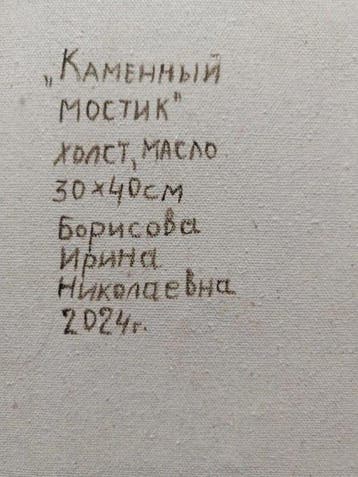 „Каменный
мостик"
холст, масло
30×40см
Борисова
Ирина
Николаевна
2024г.